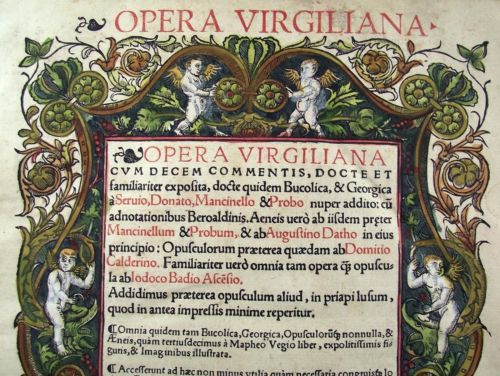 OPERA VIRGILIANA
OPERA VIRGILIANA
CVM DECEM COMMENTIS, DOCTE ET
familiariter exposita, docte quidem Bucolica, & Georgica
a Seruio, Donato, Mancinello & Probo nuper addito: cũ
adnotationibus Beroaldinis. Aeneis uerò ab iisdem pręter
Mancinellum & Probum, & ab Augustino Datho in eius
principio: Opusculorum præterea quædam ab Domitio
Calderino. Familiariter uerò omnia tam opera q̃ opuscu
la ab Iodoco Badio Ascẽsio.
Addidimus præterea opusculum aliud, in priapi lusum,
quod in antea impressis minime reperitur.
¶ Omnia quidem tam Bucolica, Georgica, Opusculorũq nonnulla, &
Æneis, quàm tertiusdecimus à Mapheo Vegio liber, expolitissimis fi
guris, & Imaginibus illustrata.
¶ Accesserunt ad hæc non minus utilia quàm necessaria